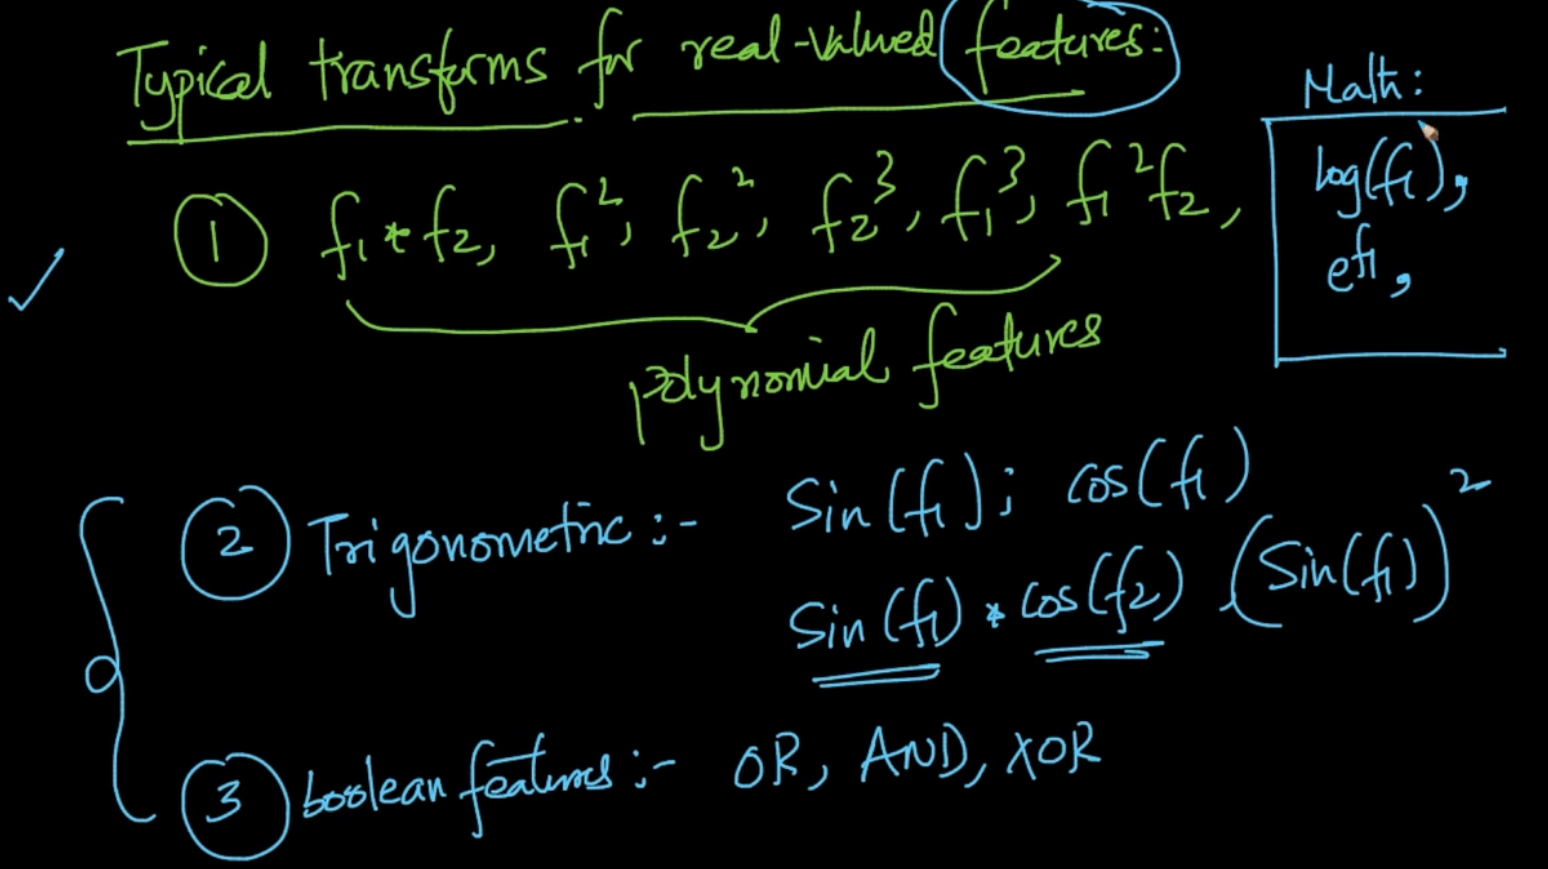 Typical transforms for real-valued features:
Math:
① f₁*f₂, f₁², f₂², f₂³, f₁³, f₁²f₂,
log(f₁),
e^f₁,
polynomial features
② Trigonometric :- Sin(f₁); cos(f₁)
Sin(f₁) * cos(f₂), (Sin(f₁))²
③ boolean features :- OR, AND, XOR